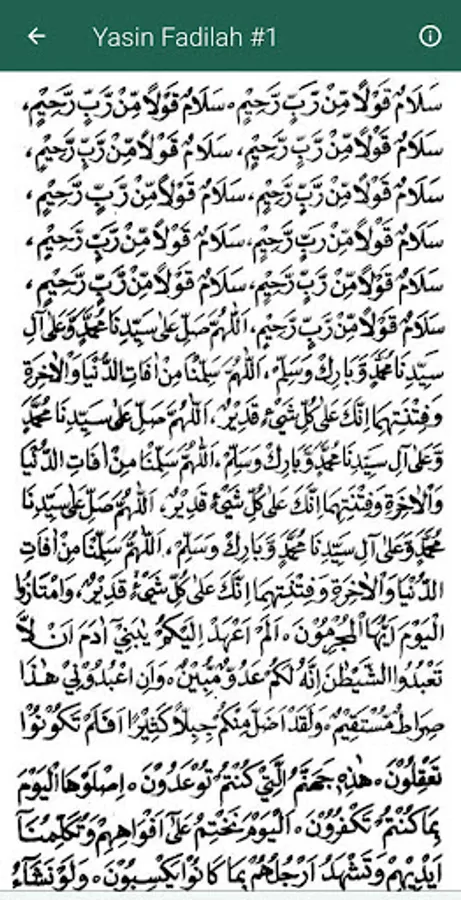 Yasin Fadilah #1
سَلَامٌ قَوْلًا مِّنْ رَّبٍّ رَّحِيْمٍ، سَلَامٌ قَوْلًا مِّنْ رَّبٍّ رَّحِيْمٍ،
سَلَامٌ قَوْلًا مِّنْ رَّبٍّ رَّحِيْمٍ، سَلَامٌ قَوْلًا مِّنْ رَّبٍّ رَّحِيْمٍ،
سَلَامٌ قَوْلًا مِّنْ رَّبٍّ رَّحِيْمٍ، سَلَامٌ قَوْلًا مِّنْ رَّبٍّ رَّحِيْمٍ،
سَلَامٌ قَوْلًا مِّنْ رَّبٍّ رَّحِيْمٍ، سَلَامٌ قَوْلًا مِّنْ رَّبٍّ رَّحِيْمٍ،
سَلَامٌ قَوْلًا مِّنْ رَّبٍّ رَّحِيْمٍ، سَلَامٌ قَوْلًا مِّنْ رَّبٍّ رَّحِيْمٍ،
سَلَامٌ قَوْلًا مِّنْ رَّبٍّ رَّحِيْمٍ، اَللّٰهُمَّ صَلِّ عَلٰى سَيِّدِنَا مُحَمَّدٍ وَّعَلٰى آلِ
سَيِّدِنَا مُحَمَّدٍ وَّبَارِكْ وَسَلِّمْ، اَللّٰهُمَّ سَلِّمْنَا مِنْ اٰفَاتِ الدُّنْيَا وَالْاٰخِرَةِ
وَفِتْنَتِهِمَا اِنَّكَ عَلٰى كُلِّ شَيْءٍ قَدِيْرٌ، اَللّٰهُمَّ صَلِّ عَلٰى سَيِّدِنَا مُحَمَّدٍ
وَّعَلٰى آلِ سَيِّدِنَا مُحَمَّدٍ وَّبَارِكْ وَسَلِّمْ، اَللّٰهُمَّ سَلِّمْنَا مِنْ اٰفَاتِ الدُّنْيَا
وَالْاٰخِرَةِ وَفِتْنَتِهِمَا اِنَّكَ عَلٰى كُلِّ شَيْءٍ قَدِيْرٌ، اَللّٰهُمَّ صَلِّ عَلٰى سَيِّدِنَا
مُحَمَّدٍ وَّعَلٰى آلِ سَيِّدِنَا مُحَمَّدٍ وَّبَارِكْ وَسَلِّمْ، اَللّٰهُمَّ سَلِّمْنَا مِنْ اٰفَاتِ
الدُّنْيَا وَالْاٰخِرَةِ وَفِتْنَتِهِمَا اِنَّكَ عَلٰى كُلِّ شَيْءٍ قَدِيْرٌ، وَامْتَازُوا
الْيَوْمَ اَيُّهَا الْمُجْرِمُوْنَ ۰ اَلَمْ اَعْهَدْ اِلَيْكُمْ يٰبَنِيْٓ اٰدَمَ اَنْ لَّا
تَعْبُدُوا الشَّيْطٰنَ اِنَّهُ لَكُمْ عَدُوٌّ مُّبِيْنٌ ۰ وَاَنِ اعْبُدُوْنِيْ هٰذَا
صِرَاطٌ مُّسْتَقِيْمٌ ۰ وَلَقَدْ اَضَلَّ مِنْكُمْ جِبِلًّا كَثِيْرًا اَفَلَمْ تَكُوْنُوْا
تَعْقِلُوْنَ ۰ هٰذِهِ جَهَنَّمُ الَّتِيْ كُنْتُمْ تُوْعَدُوْنَ ۰ اِصْلَوْهَا الْيَوْمَ
بِمَا كُنْتُمْ تَكْفُرُوْنَ ۰ اَلْيَوْمَ نَخْتِمُ عَلٰٓى اَفْوَاهِهِمْ وَتُكَلِّمُنَآ
اَيْدِيْهِمْ وَتَشْهَدُ اَرْجُلُهُمْ بِمَا كَانُوْا يَكْسِبُوْنَ ۰ وَلَوْ نَشَآءُ